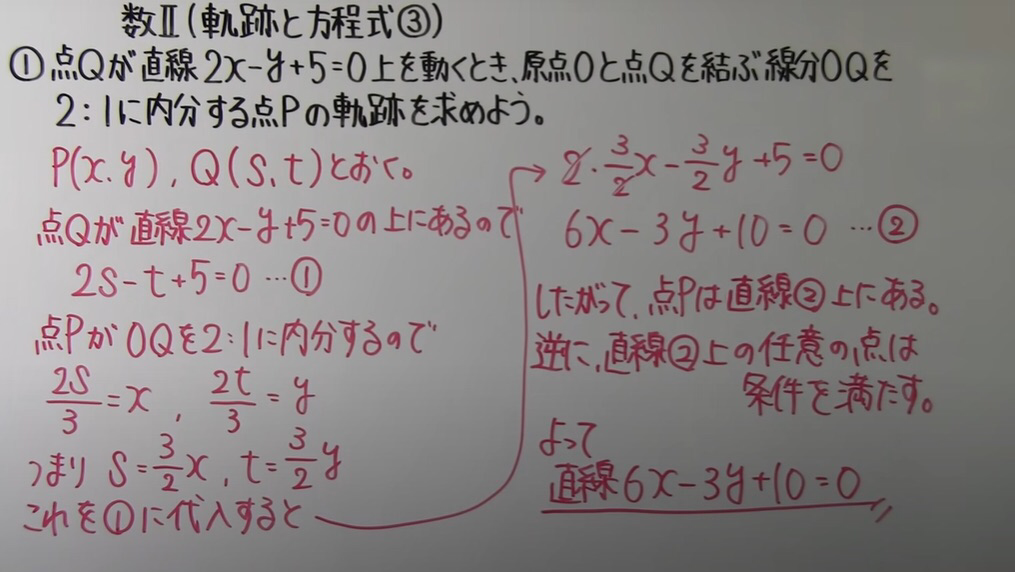 数Ⅱ(軌跡と方程式③)
①点Qが直線2x-y+5=0上を動くとき、原点Oと点Qを結ぶ線分OQを
2:1に内分する点Pの軌跡を求めよう。
P(x.y), Q(s,t)とおく。
点Qが直線2x-y+5=0の上にあるので
2s-t+5=0 …①
点PがOQを2:1に内分するので
2s/3=x , 2t/3=y
つまり s=3/2x , t=3/2y
これを①に代入すると
→2・3/2x-3/2y+5=0
6x-3y+10=0 …②
したがって、点Pは直線②上にある。
逆に、直線②上の任意の点は
条件を満たす。
よって
直線6x-3y+10=0